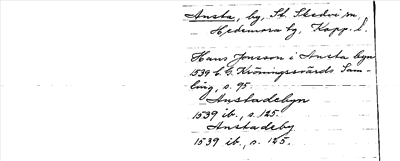 Ansta, by, St. Skedvi sn,
Hedemora by, Kopp. l.
Hans Jonsson i Ansta byn
1539 C. G. Kröningssvärds Sam-
ling, s. 95.
Anstadebyn
1539 ib., s. 125.
Anstadeby
1539 ib., s. 125.